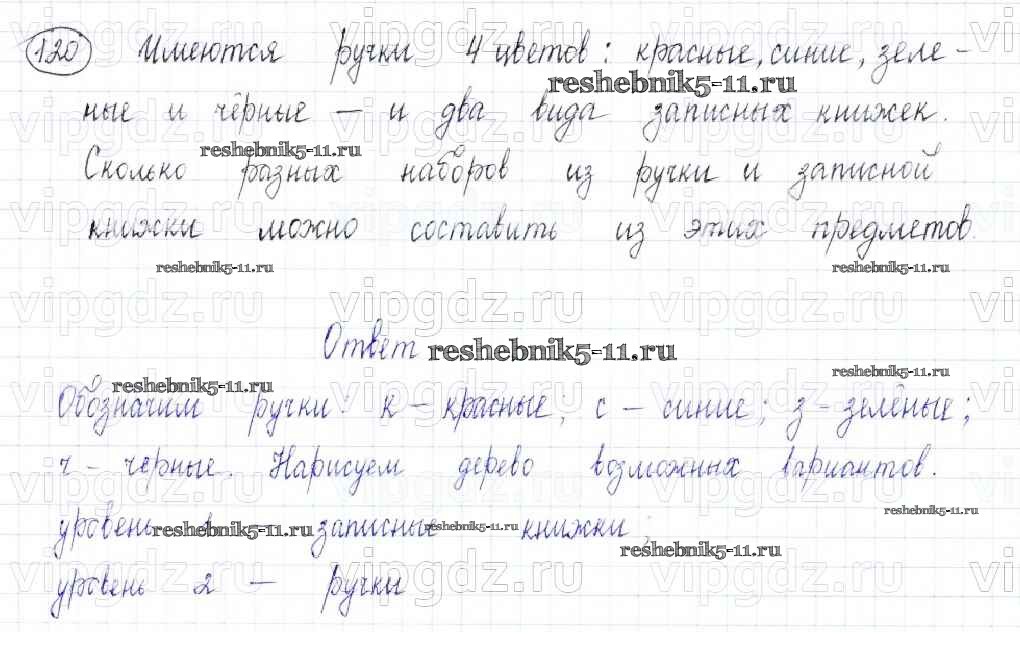 120 Имеются ручки 4 цветов: красные, синие, зеле-
ные и чёрные – и два вида записных книжек.
Сколько разных наборов из ручки и записной
книжки можно составить из этих предметов.
Ответ
Обозначим ручки: к – красные; с – синие; з – зелёные;
ч – черные. Нарисуем дерево возможных вариантов.
уровень записные книжки;
уровень 2 – ручки
reshebnik5-11.ru
reshebnik5-11.ru
reshebnik5-11.ru
reshebnik5-11.ru
reshebnik5-11.ru
reshebnik5-11.ru
reshebnik5-11.ru
reshebnik5-11.ru
reshebnik5-11.ru
reshebnik5-11.ru
reshebnik5-11.ru
vipgdz.ru